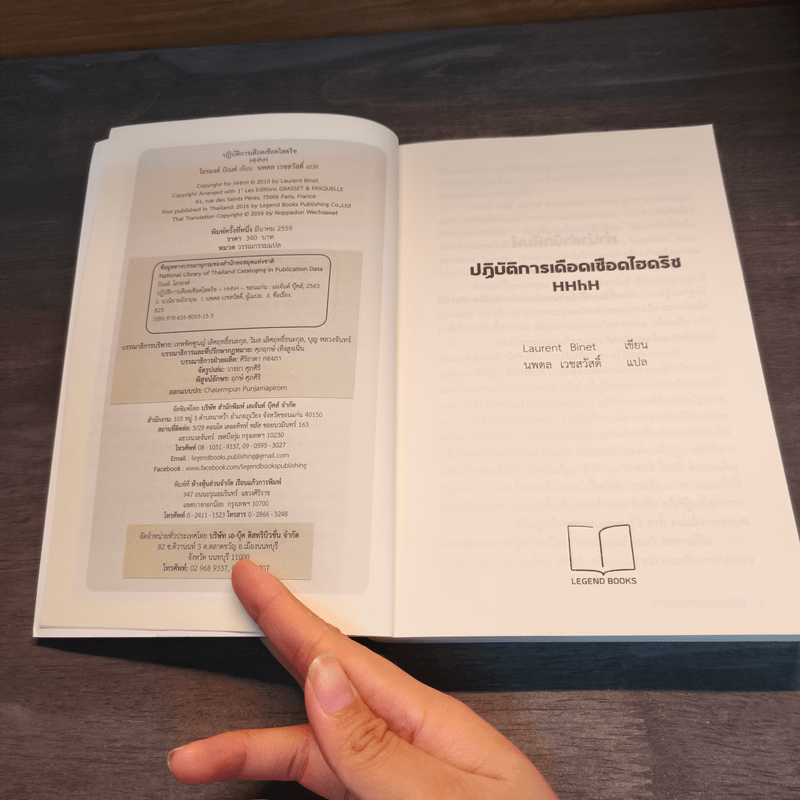 ปฏิบัติการเดือดเชือดไฮดริช
HHhH
โลรองต์ บิเนต์ เขียน นพดล เวชสวัสดิ์ แปล
Copyright for HHhH © 2010 by Laurent Binet
Copyright Arranged with 1° Les Editions GRASSET & FASQUELLE
61, rue des Saints Pères, 75006 Paris, France
First published in Thailand: 2016 by Legend Books Publishing Co.,Ltd
Thai Translation Copyright © 2016 by Noppadon Wechsawat
พิมพ์ครั้งที่หนึ่ง มีนาคม 2559
ราคา 340 บาท
หมวด วรรณกรรมแปล
ข้อมูลทางบรรณานุกรมของสำนักหอสมุดแห่งชาติ
National Library of Thailand Cataloging in Publication Data
บิเนต์, โลรองต์
ปฏิบัติการเดือดเชือดไฮดริช = HHhH -- ขอนแก่น : เลเจ้นด์ บุ๊คส์, 2563
1. นวนิยายอังกฤษ. I. นพดล เวชสวัสดิ์, ผู้แปล. II. ชื่อเรื่อง.
823
ISBN 978-616-8093-13-3
บรรณาธิการบริหาร: เทพพิศนุณย์ เลิศฤทธิ์ธนะกุล, วิมล เลิศฤทธิ์ธนะกุล, บุญ หลวงจันทร์
บรรณาธิการและที่ปรึกษากฎหมาย: ศุภฤกษ์ เทิงสูงเนิน
บรรณาธิการฝ่ายผลิต: ศิริธาดา กองภา
จัดรูปเล่ม: วารยา ศุภศิริ
พิสูจน์อักษร: ฤกษ์ ศุภศิริ
ออกแบบปก: Chalermpun Punjamapirom
จัดพิมพ์โดย บริษัท สำนักพิมพ์ เลเจ้นด์ บุ๊คส์ จำกัด
สำนักงาน: 103 หมู่ 3 ตำบลนาหว้า อำเภอภูเวียง จังหวัดขอนแก่น 40150
สถานที่ติดต่อ: 3/29 คอนโด เดอะคิทท์ พลัส ซอยนวมินทร์ 163
แขวงนวลจันทร์ เขตบึงกุ่ม กรุงเทพฯ 10230
โทรศัพท์ 08 - 1051 - 9137, 09 - 0595 - 3027
Email : legendbooks.publishing@gmail.com
Facebook : www.facebook.com/legendbookspublishing
พิมพ์ที่ ห้างหุ้นส่วนจำกัด เรือนแก้วการพิมพ์
947 ถนนอรุณอมรินทร์ แขวงศิริราช
เขตบางกอกน้อย กรุงเทพฯ 10700
โทรศัพท์ 0 - 2411 - 1523 โทรสาร 0 - 2866 - 3248
จัดจำหน่ายทั่วประเทศโดย บริษัท เอ-บุ๊ค ดิสทริบิวชั่น จำกัด
82 ซ.ติวานนท์ 3 ต.ตลาดขวัญ อ.เมืองนนทบุรี
จังหวัด นนทบุรี 11000
โทรศัพท์: 02 968 9337,
ปฏิบัติการเดือดเชือดไฮดริช
HHhH
Laurent Binet เขียน
นพดล เวชสวัสดิ์ แปล
LEGEND BOOKS